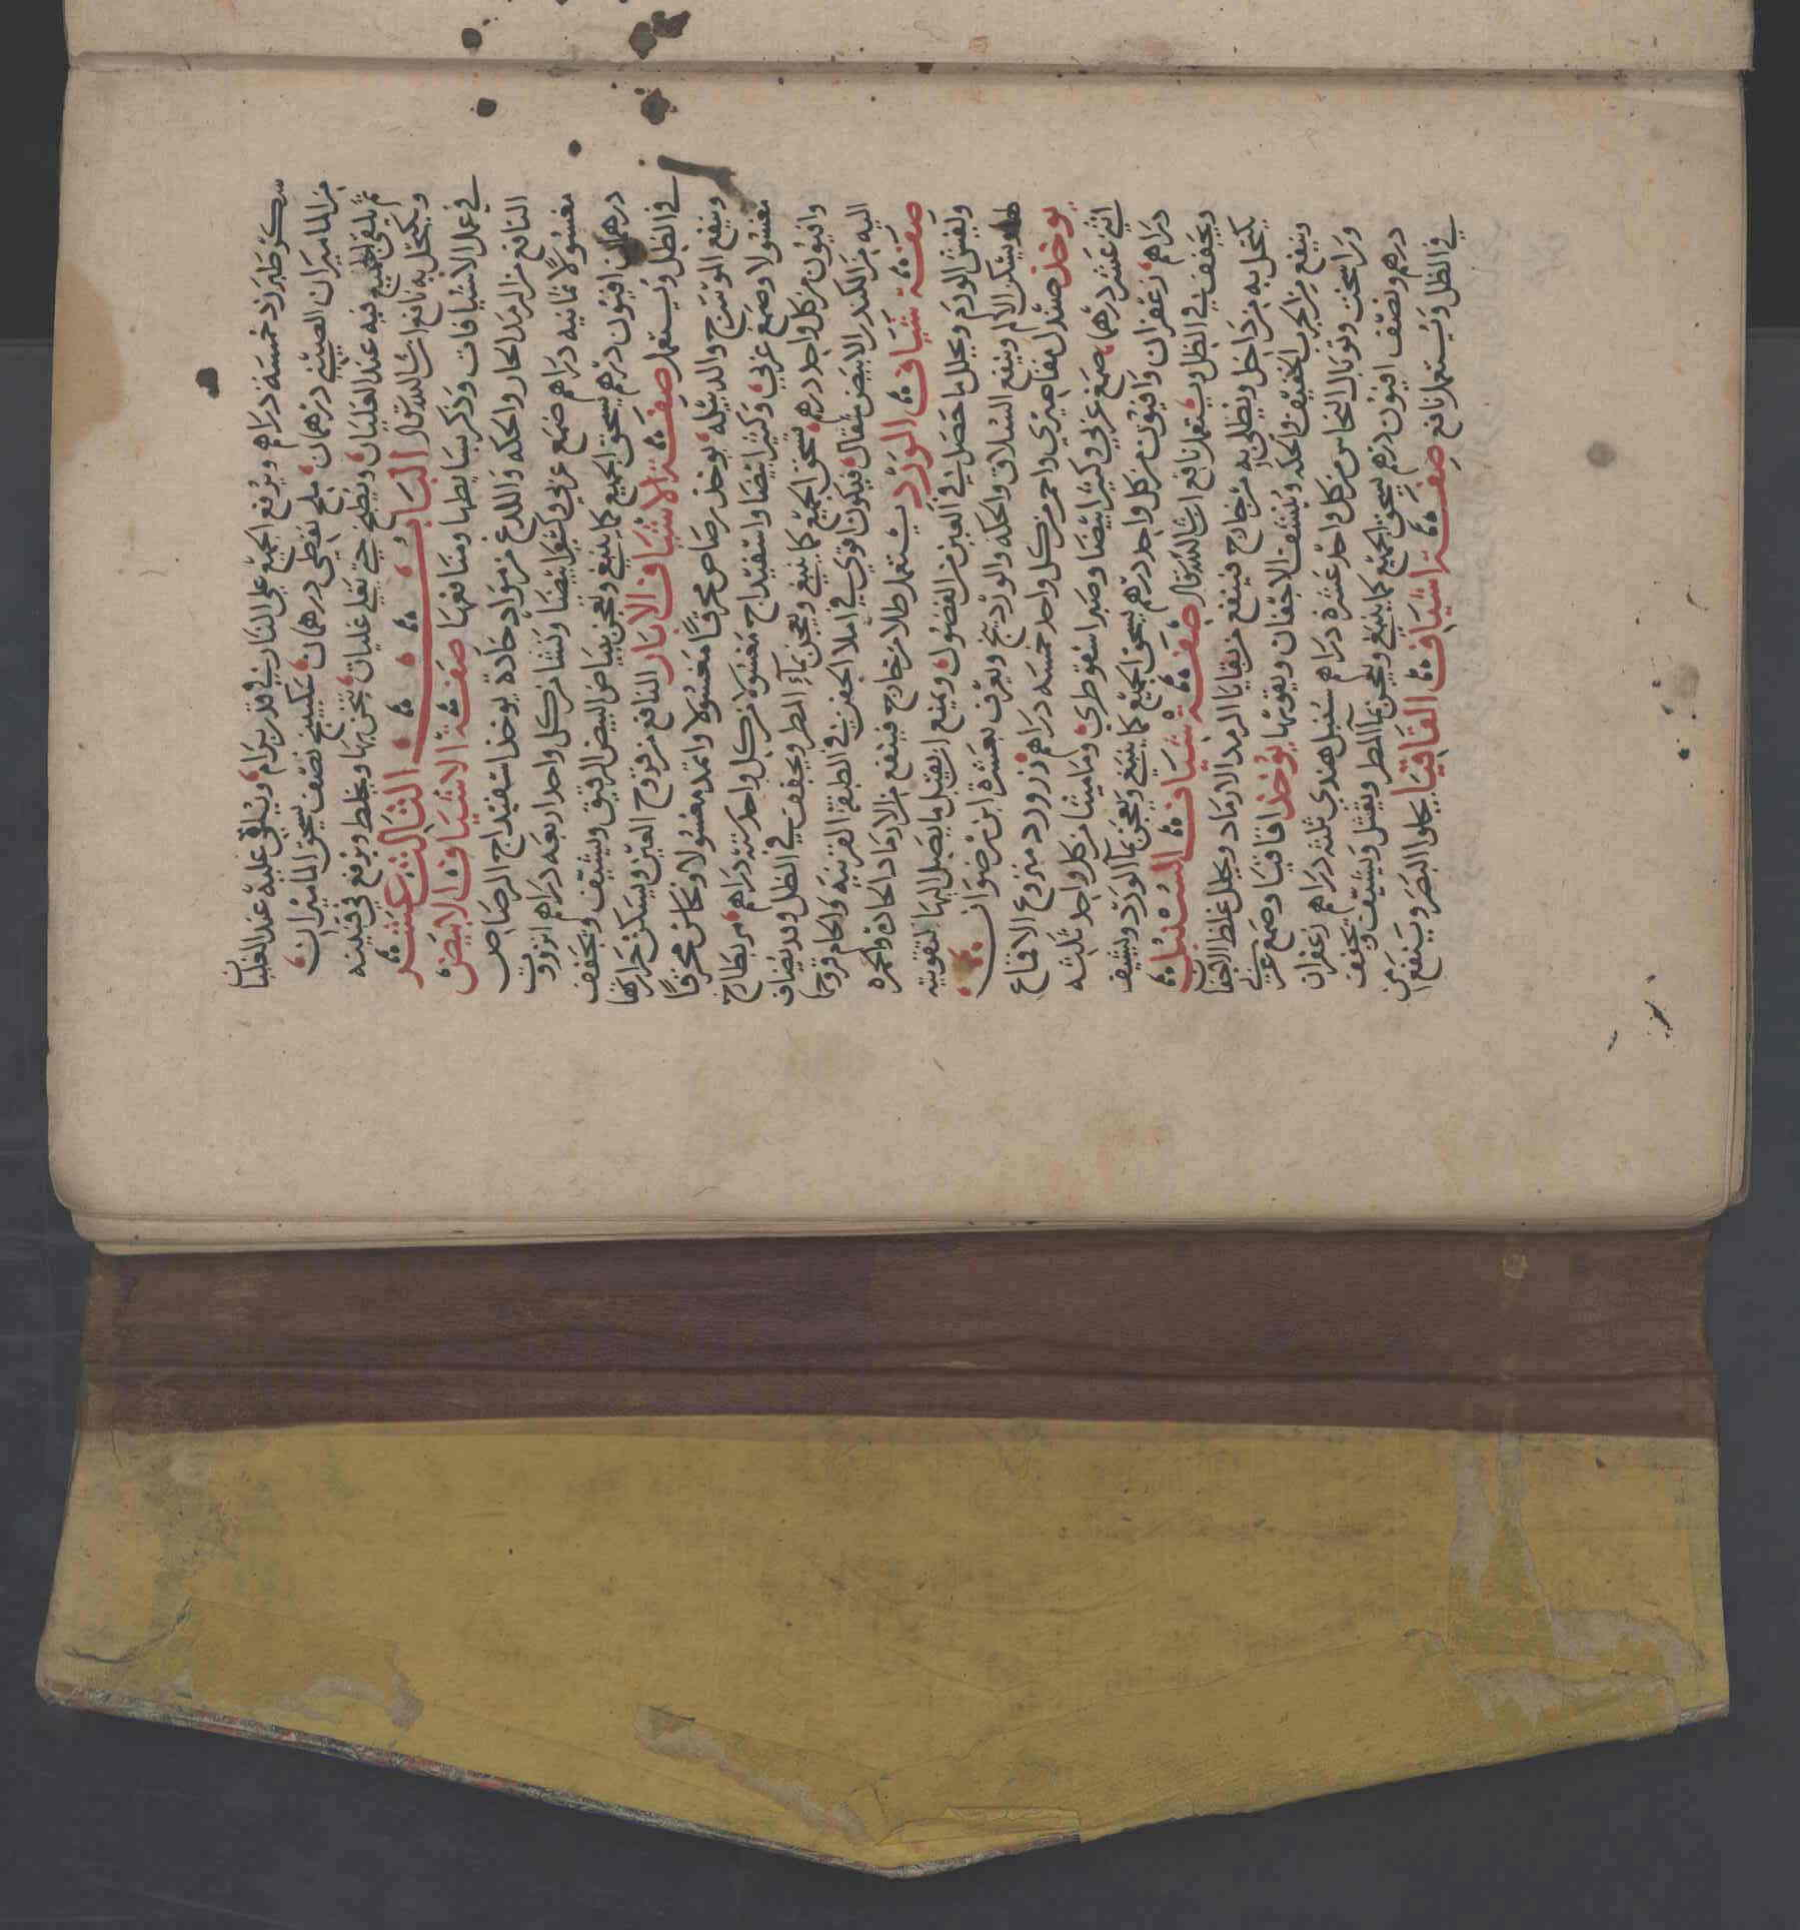 سكر طبرزد خمسة دراهم ويرفع الجميع على النار في قدر برام ويلقى عليه عند الغليان
من الماميران الصيني درهمان ملح نفطي درهمان سكبينج نصف يسحق الماميران
ثم يلقى الجميع فيه عند الغليان ويطبخ حتى يغلي غليات يثخن بها ويخلط ويرفع في قنينه
ويكتحل به نافع ان شا الله تعالى الباب الثالث عشر
في عمل الاشيافات وذكر بسايطها ومنافعها صفة الاشياف الابيض
النافع من الرمد الحار والحكه واللذع من مواد حادة يوخذ اسفيداج الرصاص
مغسولا ثمانيه دراهم صمغ عربي وكثيرا بيضا ونشا من كل واحد اربعه دراهم انزروت
درهمان افيون درهم يسحق الجميع كما ينبغي ويعجن ببياض البيض الرقيق ويشيف ويجفف
في الظل ويستعمل صفة الاشياف الابار النافع من قروح العين ويسكن حرارتها
وينفع الموسرج والدبيله يوخذ رصاص محرقا مغسولا واثمد مغسولا ونحاس محرقا
مغسولا وصمغ عربي وكثيرا بيضا واسفيداج مغسولا من كل واحد ستة دراهم مر بطارخ
وافيون من كل واحد درهم يسحق الجميع كما ينبغي ويعجن بماء المطر ويجفف في الظل وقد يضاف
اليه من الكندر الابيض مثقال فيكون اقوي في املا الحفر في الطبقة القرنيه والحام قروحها
صفة شياف الورد يستعمل طلا من خارج فينفع من الارماد الحارة والحمره
ولفش الورم ويحلل ما حصل في العين من الفضول ويمنع ان يقبل ما يصل اليها لتقويته
لها ويسكن الالم وينفع السلاق والحكه والوردينج ويعرف بعشرة ابن رضوان
يوخذ صندل مقاصيري واحمر من كل واحد خمسه دراهم زرورد منزوع الاقماع
اثني عشر درهما صمغ عربي وكثيرا بيضا وصبر اسقوطري وماميثا من كل واحد ثلثه
دراهم زعفران وافيون من كل واحد درهم يسحق الجميع كما ينبغي ويعجن بماء الورد ويشيف
ويجفف في الظل ويستعمل نافع ان شا الله تعالى صفة شياف السنبل
يكتحل به من داخل ويطلى به من خارج فينفع من بقايا الرمد الارماد ويحلل غلظ الاجفان
وينفع من الجرب الخفيف والحكه وينشف الاجفان ويقويها يوخذ اقاقيا وصمغ عربي
وراسخت وتوبال النحاس من كل واحد عشرة دراهم سنبل هندي ثلثه دراهم زعفران
درهم ونصف افيون درهم يسحق الجميع كما ينبغي ويعجن بماء المطر ويفتل ويشيف ويجفف
في الظل ويستعمل نافع صفة اشياف القاقيا يجلو البصر وينفع من